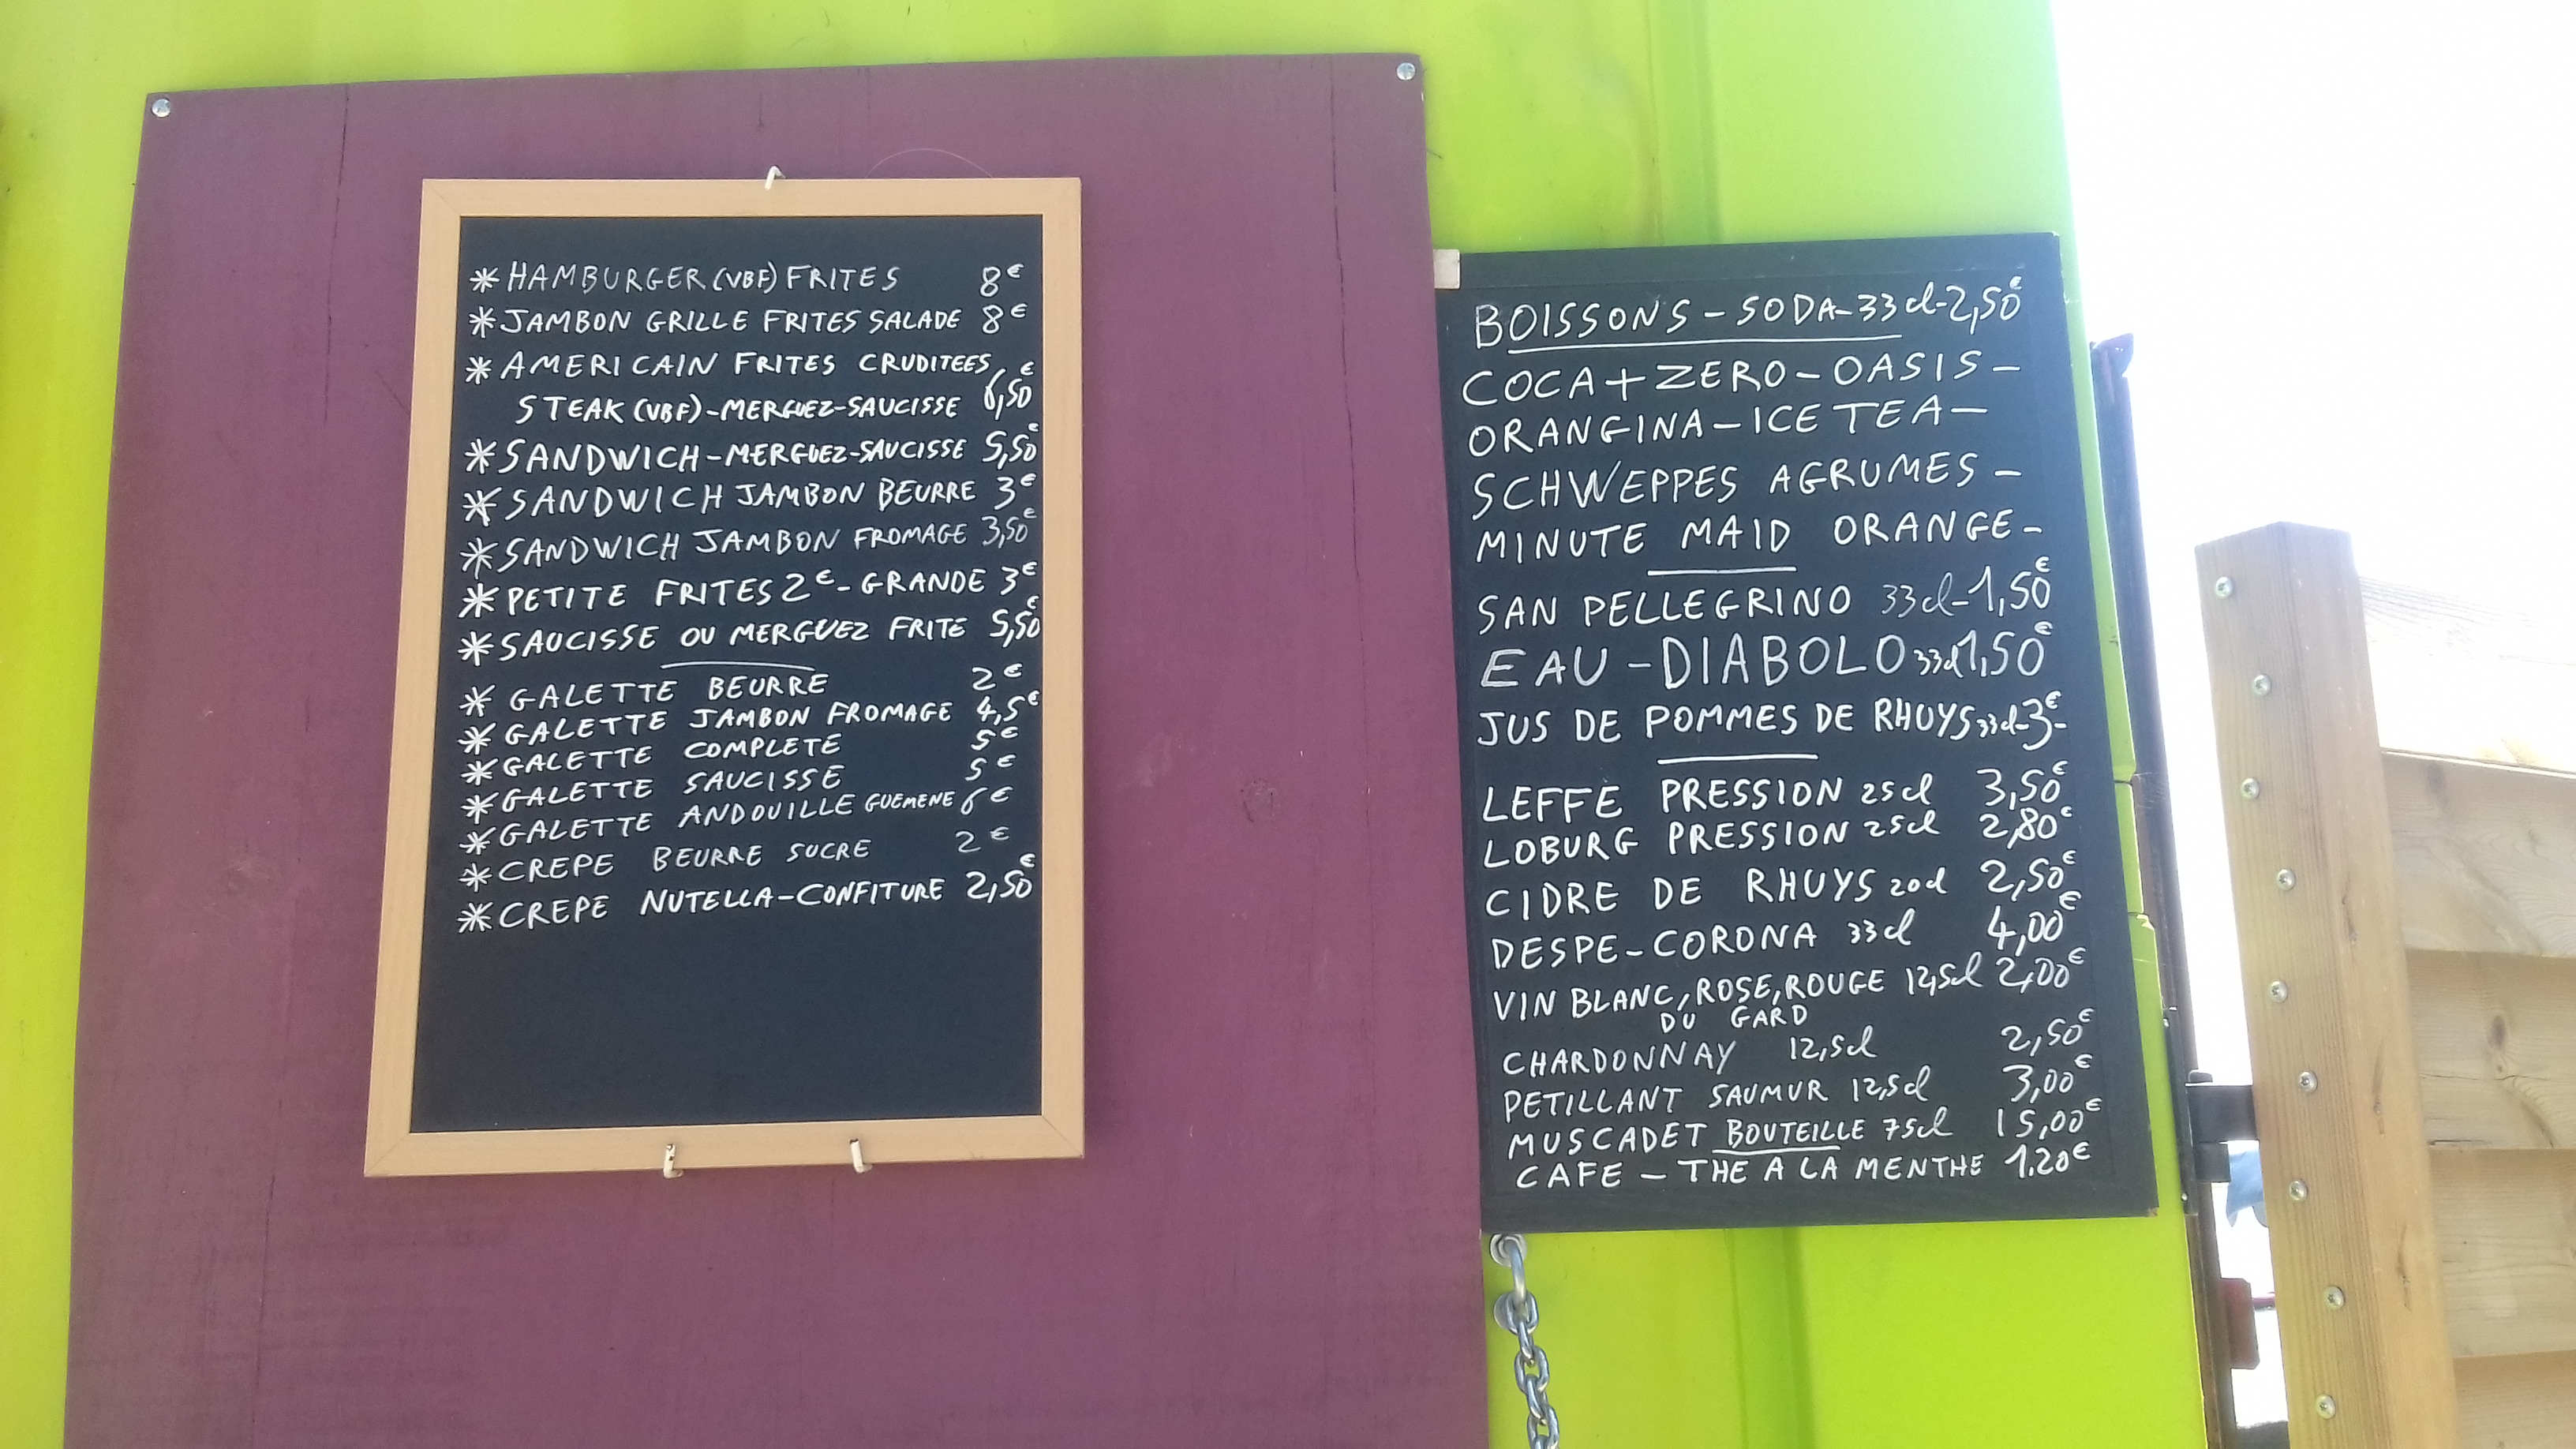 * HAMBURGER (VBF) FRITES 8€
* JAMBON GRILLE FRITES SALADE 8€
* AMERICAIN FRITES CRUDITEES
STEAK (VBF) - MERGUEZ - SAUCISSE 6,50€
* SANDWICH - MERGUEZ - SAUCISSE 5,50€
* SANDWICH JAMBON BEURRE 3€
* SANDWICH JAMBON FROMAGE 3,50€
* PETITE FRITES 2€ - GRANDE 3€
* SAUCISSE OU MERGUEZ FRITE 5,50€
* GALETTE BEURRE 2€
* GALETTE JAMBON FROMAGE 4,5€
* GALETTE COMPLETE 5€
* GALETTE SAUCISSE 5€
* GALETTE ANDOUILLE GUEMENE 6€
* CREPE BEURRE SUCRE 2€
* CREPE NUTELLA - CONFITURE 2,50€
BOISSONS - SODA - 33cl - 2,50€
COCA + ZERO - OASIS -
ORANGINA - ICE TEA -
SCHWEPPES AGRUMES -
MINUTE MAID ORANGE -
SAN PELLEGRINO 33cl - 1,50€
EAU - DIABOLO 33cl 1,50€
JUS DE POMMES DE RHUYS 33cl - 3€ -
LEFFE PRESSION 25cl 3,50€
LOBURG PRESSION 25cl 2,80€
CIDRE DE RHUYS 20cl 2,50€
DESPE - CORONA 33cl 4,00€
VIN BLANC, ROSE, ROUGE 12,5cl 2,00€
DU GARD
CHARDONNAY 12,5cl 2,50€
PETILLANT SAUMUR 12,5cl 3,00€
MUSCADET BOUTEILLE 75cl 15,00€
CAFE - THE A LA MENTHE 1.20€